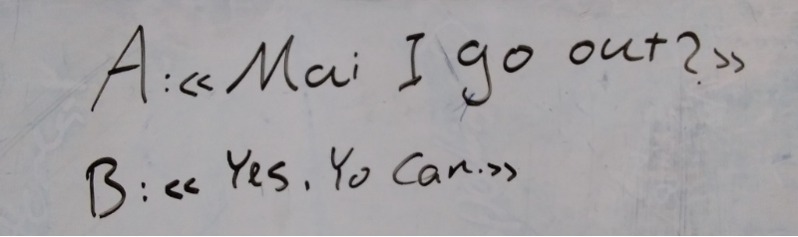 A:«Mai I go out?»
B:«Yes. Yo can.»